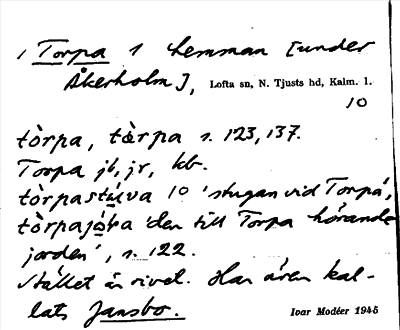 1 Torpa 1 hemman [under
Åkerholm], Lofta sn, N. Tjusts hd, Kalm. l.
10
tòrpa, tàrpa s. 123, 137.
Torpa jb, jr, kb.
tòrpastúva 10 'stugan vid Torpa',
tòrpajọ́ṛa 'den till Torpa hörande
jorden', s. 122.
Stället är rivet. Har även kal-
lats Jansbo.
Ivar Modéer 1945